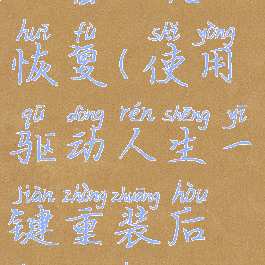 huī fù shǐ yòng
恢复(使用
qū dòng rén shēng yī
驱动人生一
jiàn zhòng zhuāng hòu
键重装后